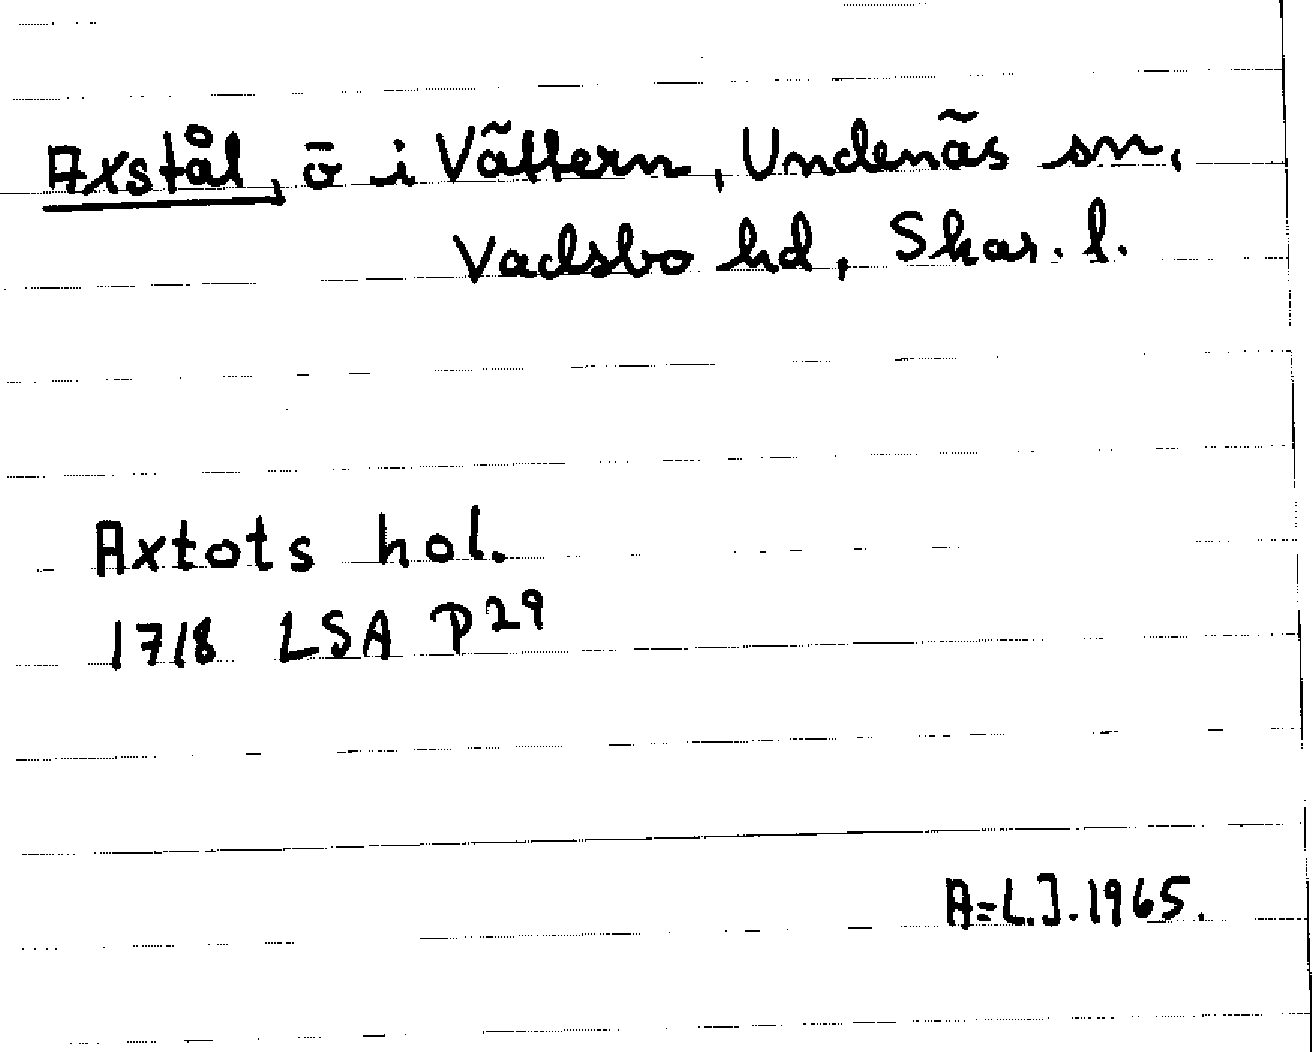 Axstål, ö i Vättern, Undenäs sn,
Vadsbo hd, Skar. l.
Axtots hol.
1718 LSA P29
A=L.J. 1965.